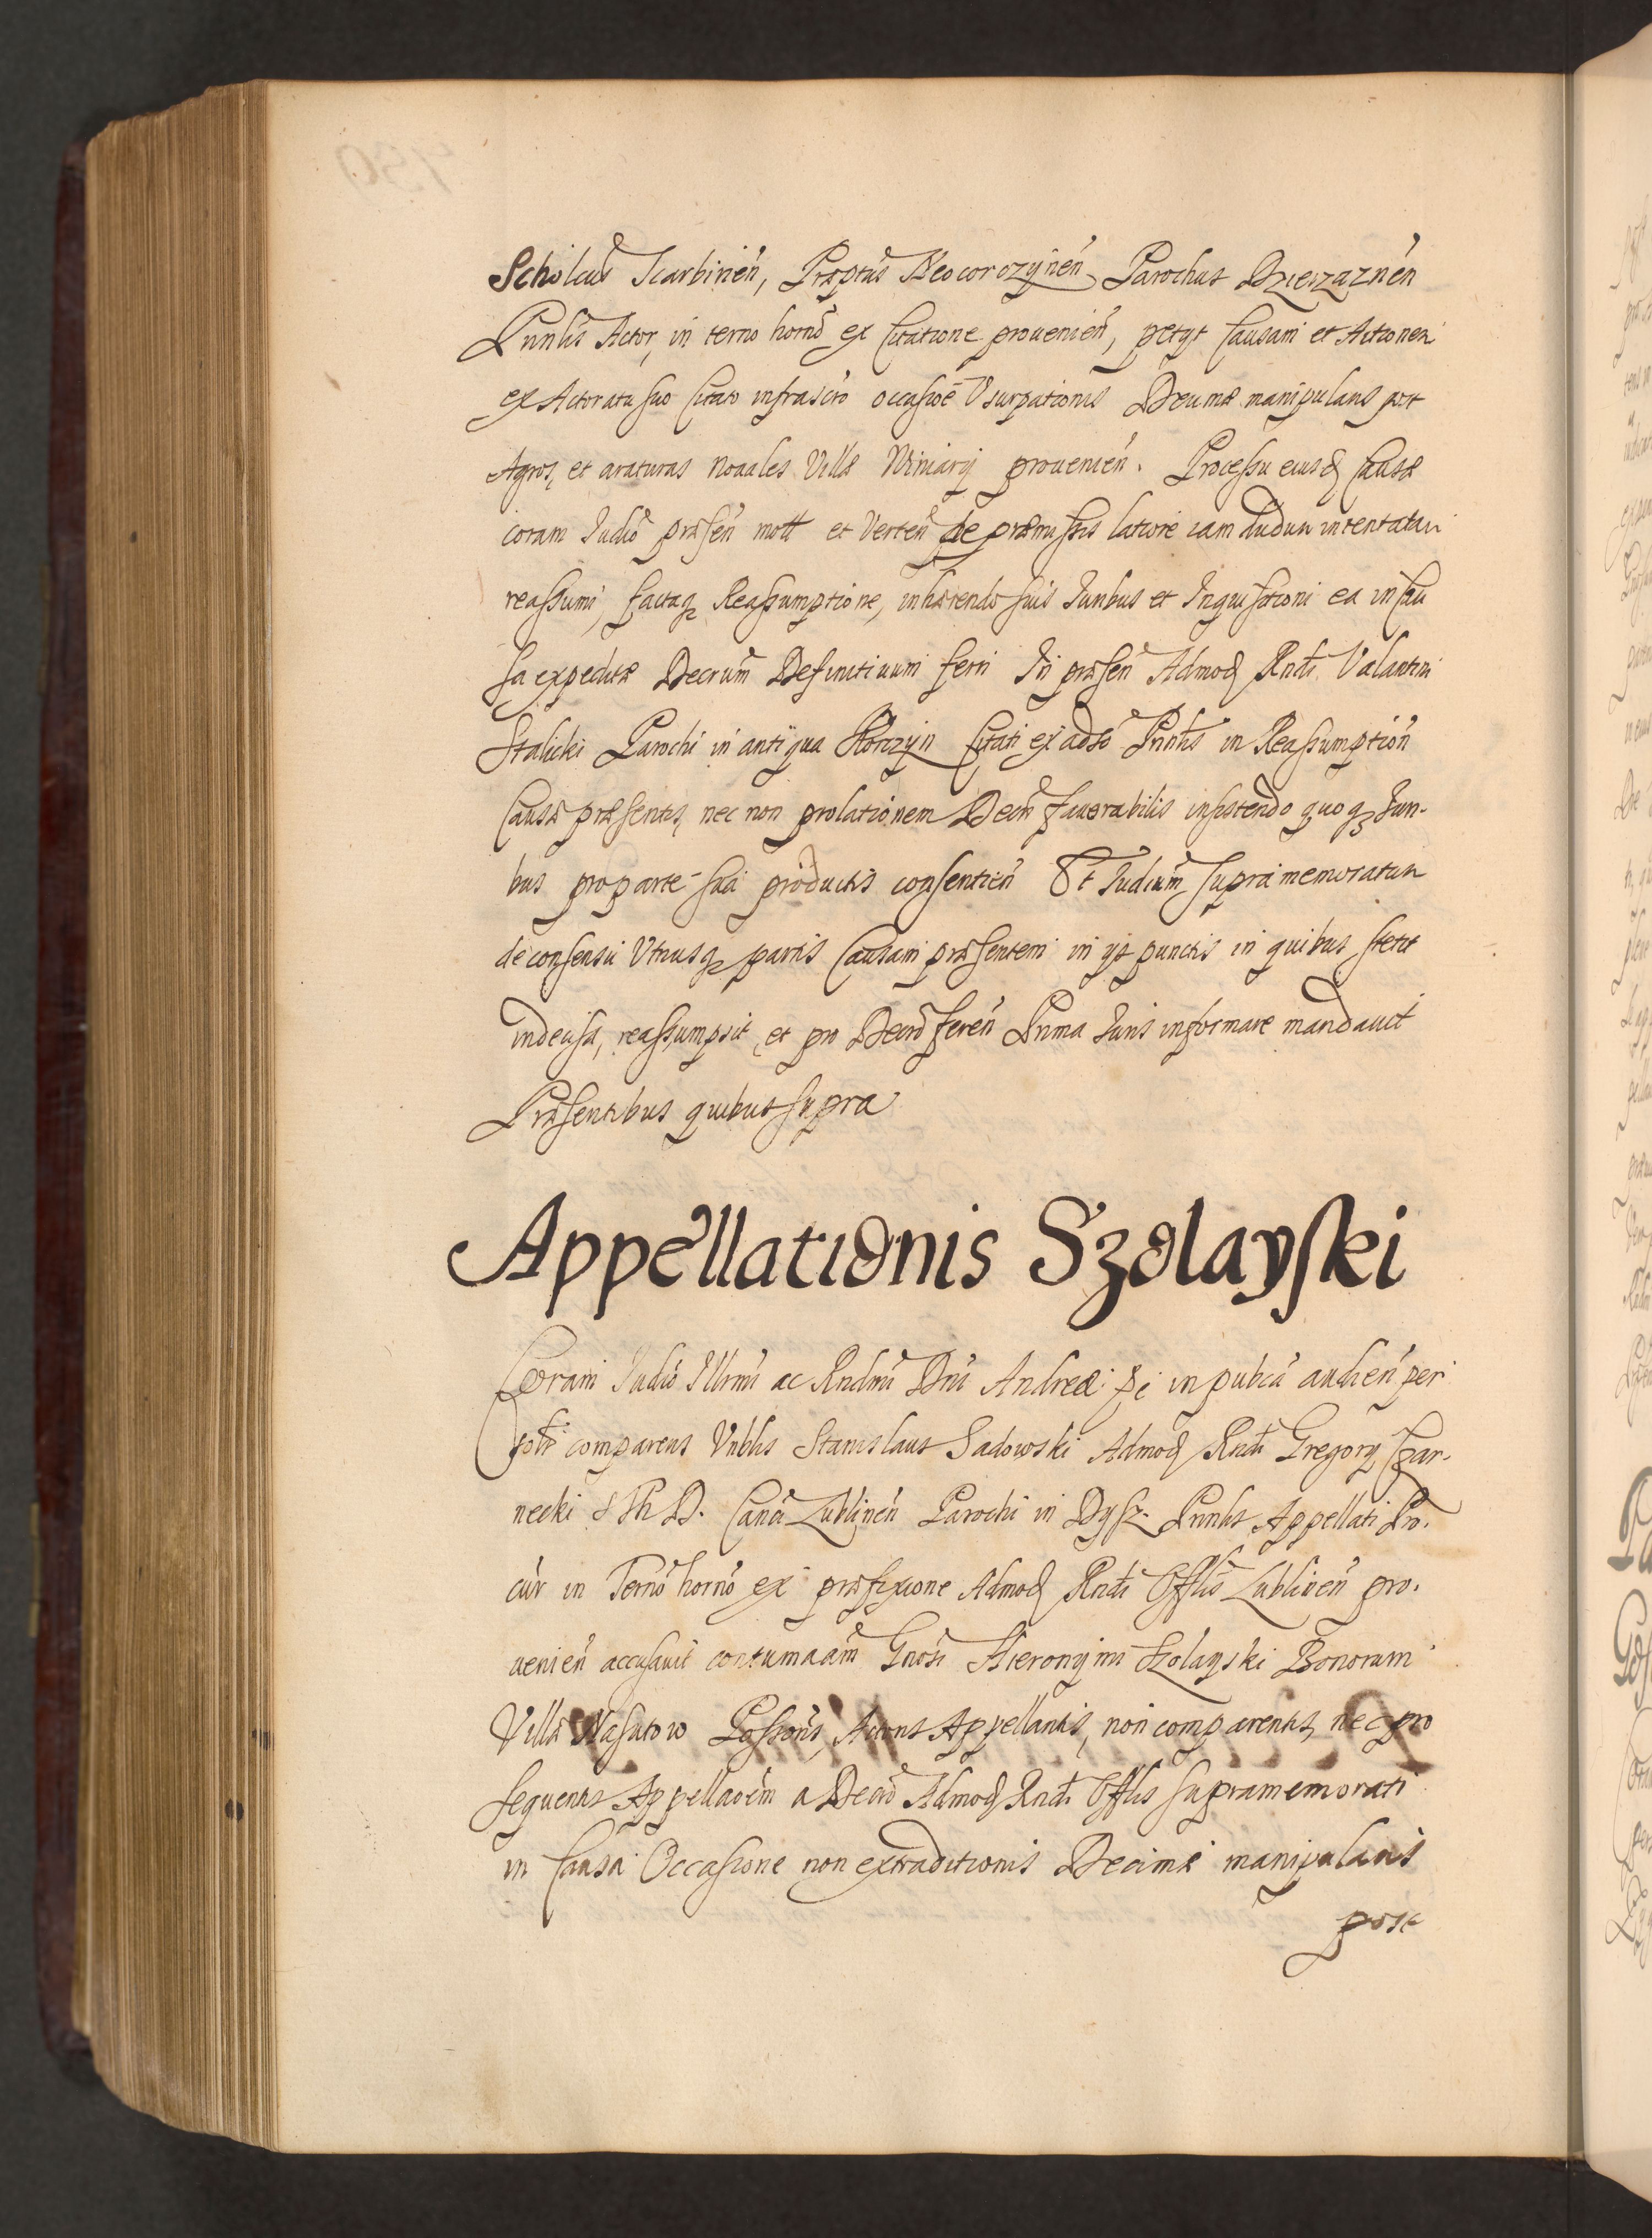 Scholcus Scarbirien, Præptus Neocorczynen, Parochus Dzierzaznen
Pnnlis Actor, in terno horno ex Citatione provenien, petyt Causam et Actionem
ex Actoratu suo Citato infrascto occasioe Usurpationis Deumæ manipularis post
Agros, et araturas novales Villæ Winiary provenien. Processu eiusd Causæ
coram Judio præsen mott et Verten de præmissis latiore iam dudum intentatam
reassumi, factaq Reassumptione, inhærendo suis Juribus et Inquisitioni ea in Cau
sa expeditæ Decrum Definitivum ferri In præsen Admod Rndi Valantini
Stalicki Parochi in antiqua Korczyn Citati ex adso Pnnlis in Reassumption
Causæ præsentis, nec non prolationem Decri favorabilis insistendo quoq Juri-
bus pro parte sua productis consentien Et Judium supra memoratum
de consensu Utriusq partis Causam præsentem in ijs punctis in quibus stetit
indecisa, reassumpsit, et pro Decro feren Prima Juris informare mandavit
Præsentibus quibus supra
Appellationis Szolayski
Coram Judio Illrmi ac Rndmi Dni Andreæ pe in pubca audien per
solr comparens Nblis Stanislaus Sadowski Admod Rndi Gregory Czar-
necki S Th D. Canci Lublinen Parochi in Dysz Pnnlis Appellati Pro-
cur in Terno horno ex præfixione Admod Rndi Offlis Lublinen pro-
venien accusavit contumaciam Gnosi Hieronymi Szolayski Bonorum
Villæ Nasutow Possoris, Actoris Appellantis, non comparentis, nec pro
sequentis Appellaoem a Decro Admod Rndi Offlis supramemorati
in Causa Occasione non extraditionis Decimæ manipularis
post